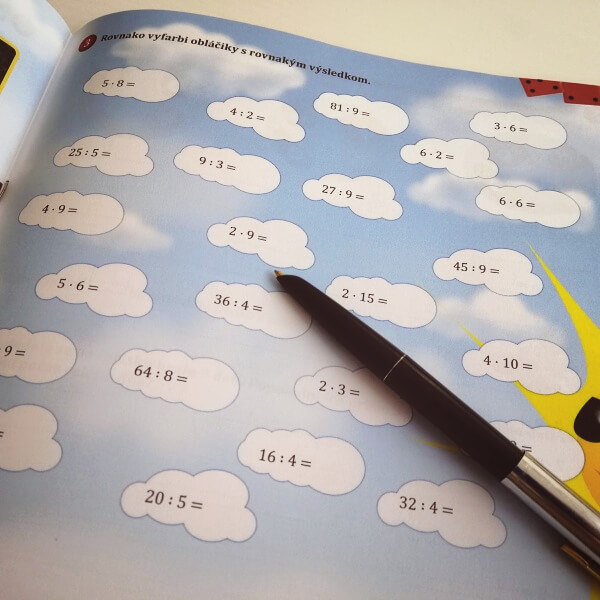 3 Rovnako vyfarbi obláčiky s rovnakým výsledkom.
5 · 8 =
4 : 2 =
81 : 9 =
3 · 6 =
25 : 5 =
9 : 3 =
6 · 2 =
27 : 9 =
6 · 6 =
4 · 9 =
2 · 9 =
45 : 9 =
5 · 6 =
36 : 4 =
2 · 15 =
9 =
64 : 8 =
2 · 3 =
4 · 10 =
=
16 : 4 =
20 : 5 =
32 : 4 =